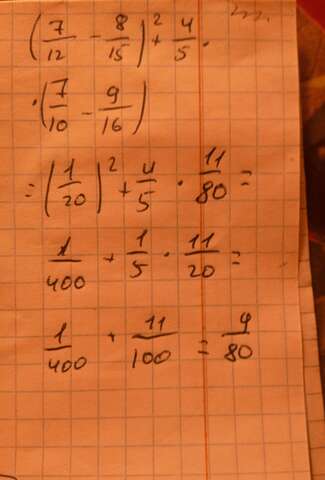 (7/12 - 8/15)² + 4/5 ·
· (7/10 - 9/16)
= (1/20)² + 4/5 · 11/80 =
1/400 + 1/5 · 11/20 =
1/400 + 11/100 = 9/80